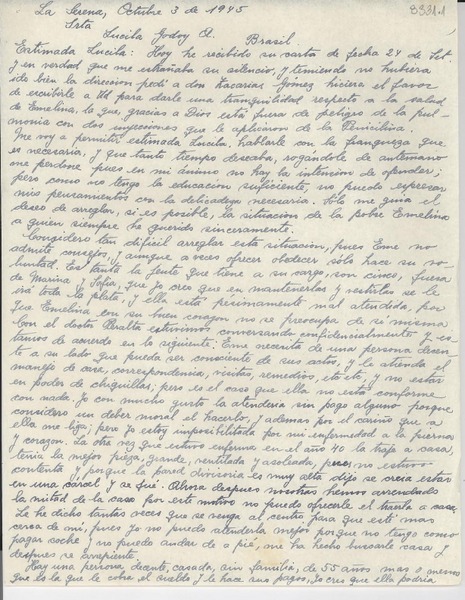 La Serena, Octubre 3 de 1945
8331.1
Srta
Lucila Godoy A. Brasil
Estimada Lucila: Hoy he recibido su carta de fecha 24 de Set.
y en verdad que me extrañaba su silencio, y temiendo no hubiera
ido bien la direccion pedí a don Zacarias Gómez hiciera el favor
de escribirle a Ud para darle una tranquilidad respecto a la salud
de Emelina, la que, gracias a Dios está fuera de peligro de la pul-
monia con dos inyecciones que le aplicaron de la Penicilina.
Me voy a permitir, estimada Lucila, hablarle con la franqueza que
es necesaria, y que tanto tiempo deseaba, rogándole de antemano
me perdone, pues en mi ánimo no hay la intencion de ofender;
pero como no tengo la educacion suficiente, no puedo expresar
mis pensamientos con la delicadeza necesaria. Sólo me guia el
deseo de arreglar, si es posible, la situacion de la pobre Emelina
a quien siempre he querido sinceramente.
Considero tan dificil arreglar esta situacion, pues Eme no
admite consejos, y aunque a veces ofrece obedecer sólo hace su vo-
luntad. Es tanta la gente que tiene a su cargo, son cinco, fuera
de Marina y Sofia, que yo creo que en mantenerlas y vestirlas se le
irá toda la plata, y ella está pésimamente mal atendida, por
que Emelina con su buen corazon no se preocupa de si misma.
Con el doctor Peralta estuvimos conversando confidencialmente y es-
tamos de acuerdo en lo siguiente: Eme necesita de una persona decen-
te a su lado que pueda ser consciente de sus actos, y le atienda el
manejo de casa, correspondencia, visitas, remedios, etc. etc. y no estar
en poder de chiquillas; pero es el caso que ella no está conforme
con nada. Yo con mucho gusto la atenderia sin pago alguno porque
considero un deber moral el hacerlo, y además por el cariño que a
ella me liga; pero yo estoy imposibilitada por mi enfermedad a la piernas
y corazon. La otra vez que estuvo enferma en el año 40 la traje a casa,
tenía la mejor pieza, grande, ventilada y asoleada, pero, no estuvo
contenta, y porque la pared divisoria es muy alta dijo se creia estar
en una carcel y se fué. Ahora despues nosotras hemos arrendado
la mitad de la casa por este motivo no puedo ofrecerle el traerla a casa.
Le he dicho tantas veces que se venga al centro para que esté mas
cerca de mí, pues yo no puedo atenderla mejor porque no tengo como
pagar coche y no puedo andar de a pié, me ha hecho buscarle casa y
despues se arrepiente.
Hay una persona decente, casada, sin familia, de 55 años mas o menos
que es la que le cobra el sueldo y le hace sus pagos, yo creo que ella podría